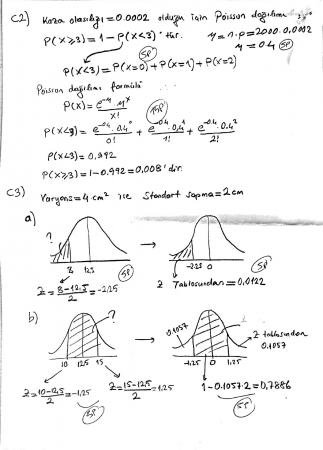 C2) Kaza olasılığı=0.0002 olduğu için Poisson dağılımı
P(X≥3)=1-P(X<3)'tür. μ=n.p=2000.0,0002
μ=0.4 5P
P(X<3)=P(X=0)+P(X=1)+P(X=2)
5P
Poisson dağılımı formülü
P(X)=e^-μ.μ^X/X! 10P
P(X<3)=e^-0.4.0.4^0/0!+e^-0.4.0.4^1/1!+e^-0.4.0.4^2/2!
P(X<3)=0,992
P(X≥3)=1-0.992=0,008'dir.
C3) Varyans=4 cm² ise Standart sapma=2cm
a)
? → 
8 12.5 5P -2.25 0 5P
Z=8-12.5/2=-2.25 Z Tablosundan=0,0122
b)
? → 0.1057 Z tablosundan
0.1057
10 12.5 15 -1.25 0 1.25
Z=10-12.5/2=-1,25 Z=15-12.5/2=1.25 1-0.1057.2=0,7886
5P